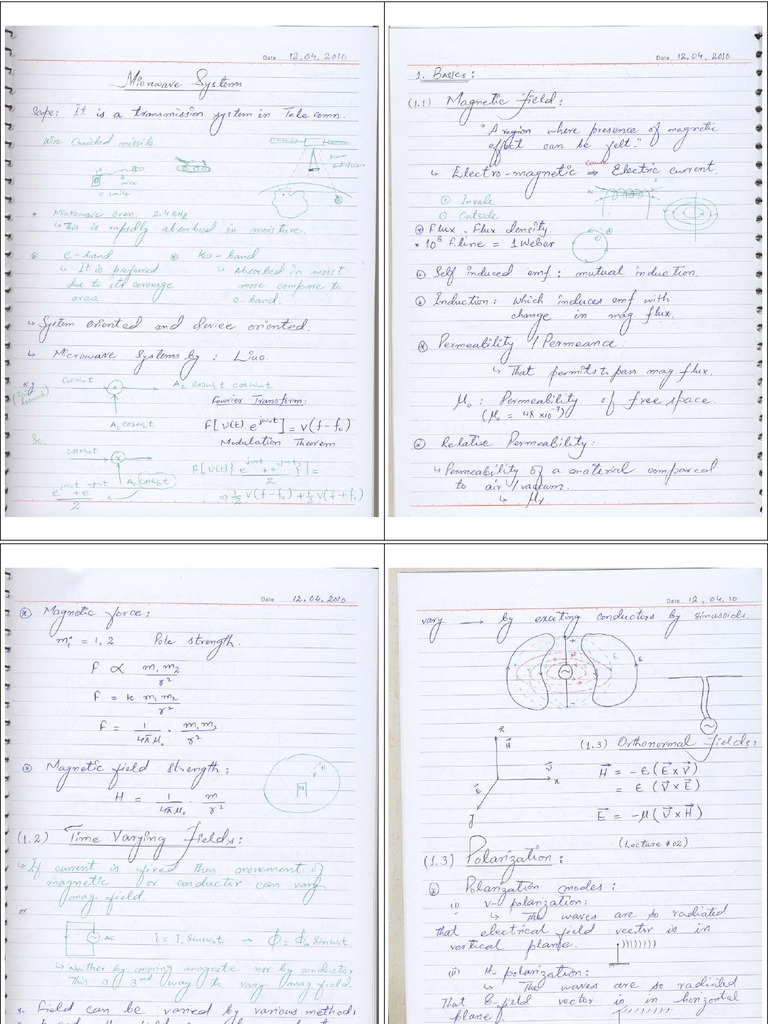 Date 12.04.2010
Microwave Systems
Scope: It is a transmission system in Tele comn.
Wire Guided missile
* Microwave oven. 2.4 GHz
↳ This is rapidly absorbed in moisture.
C-band
Ku-band
↳ It is preferred due to its coverage area
↳ Absorbed in moist more compare to C-band.
↳ System oriented and device oriented.
↳ Microwave Systems by: Liuo.
e.g
Cosω₀t
A₂ cosω₀t cosω₀t
A₁ cosω₀t
Fourier Transform:
F[v(t) e^jω₀t] = v(f-f₀)
Modulation Theorem
So.
cosω₀t
A₁ cosω₀t
F[v(t) { e^jω₀t + e^-jω₀t / 2 }] =
e^jω₀t + e^-jω₀t / 2
⇒ ½ v(f-f₀) + ½ v(f+f₀)
Date 12.04.2010
1. Basics:
(1.1) Magnetic field:
"A region where presence of magnetic
effect can be felt."
↳ Electro-magnetic ⇒ Electric current.
⊙ Inside
○ Outside
⊛ Flux, Flux density
* 10⁸ F.line = 1 Weber
Self induced emf: mutual induction.
Induction: Which induces emf with
change in mag flux.
Permeability / Permeance:
↳ That permits to pass mag flux.
μ₀: Permeability of free space.
(μ₀ = 4π×10⁻⁷)
Relative Permeability:
↳ Permeability of a material compared
to air/vacuum.
↳ μr
Date 12.04.2010
Magnetic force:
mᵢ = 1,2 Pole strength.
F ∝ m₁m₂/r²
F = k m₁m₂/r²
F = 1/4πμ₀ . m₁m₂/r²
Magnetic field strength:
H = 1/4πμ₀ . m/r²
(1.2) Time Varying Fields:
↳ If current is fixed then movement of
magnetic or conductor can vary
mag field.
or
AC I = I₀ sinω₀t → Φ = Φ₀ sinω₀t
↳ Neither by moving magnetic nor by conductor
This is 3rd way to vary mag field.
* Field can be varied by various methods
Date 12.04.10
vary → by exciting conductors by sinusoids.
H E
z
H
V
x
E
y
(1.3) Orthonormal Fields:
H = -ε(E×V)
= ε(V×E)
E = -μ(V×H)
(Lecture #02)
(1.3) Polarization:
Polarization modes:
(i) V-polarization:
↳ The waves are so radiated
that electrical field vector is in
vertical plane.
(ii) H-polarization:
↳ The waves are so radiated
That E-field vector is in horizontal
plane.